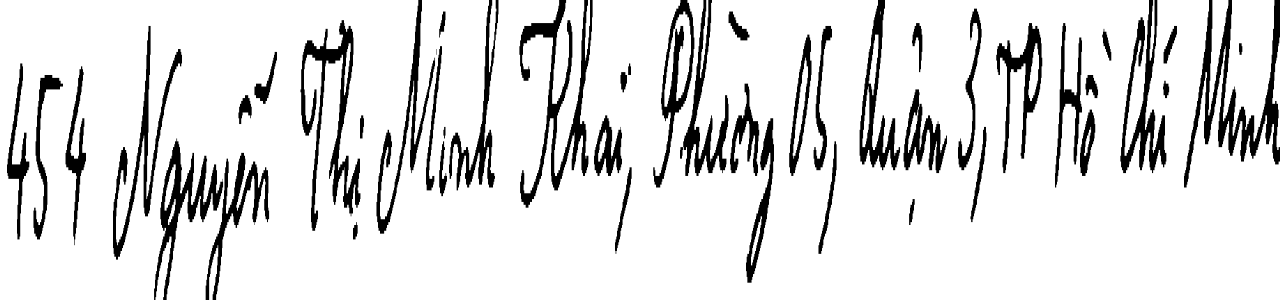 454 Nguyễn Thị Minh Khai, Phường 05, Quận 3, TP Hồ Chí Minh